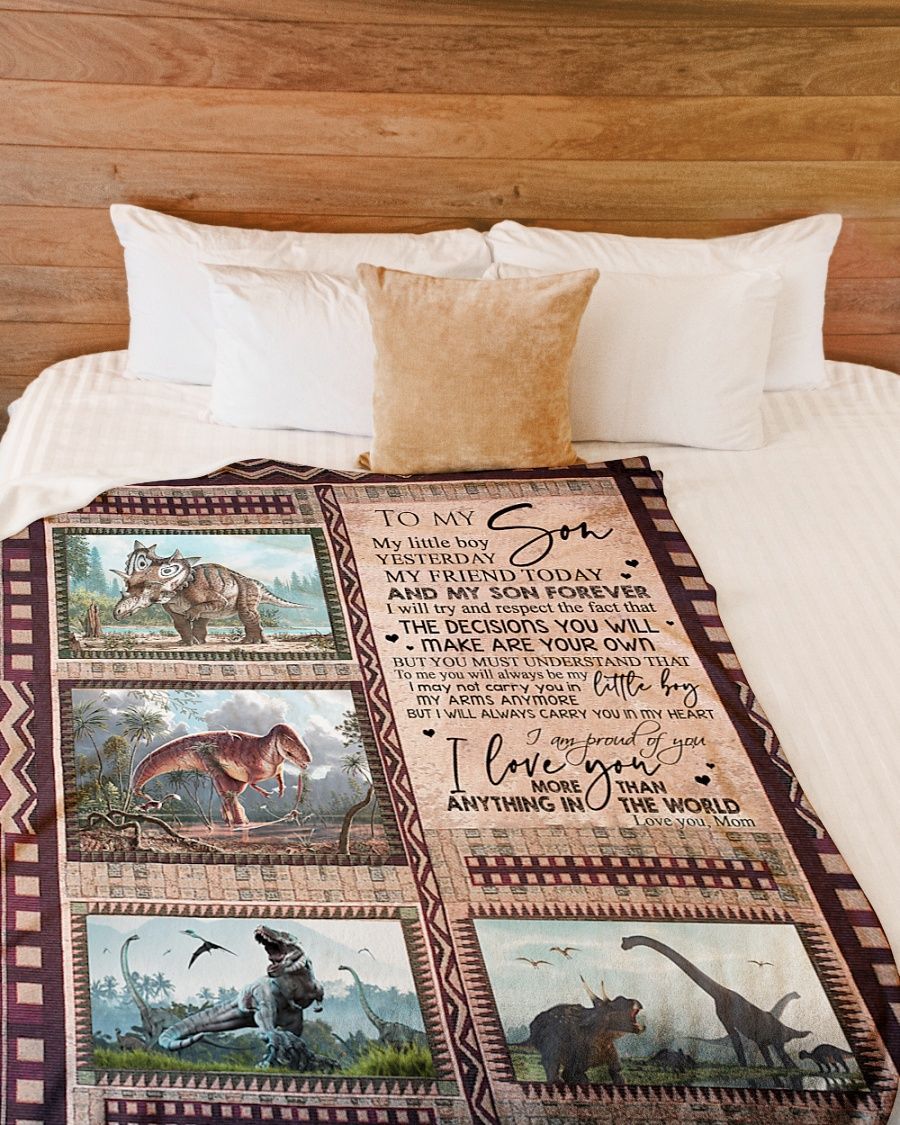 TO MY Son
My little boy
YESTERDAY
MY FRIEND TODAY
AND MY SON FOREVER
I will try and respect the fact that
THE DECISIONS YOU WILL
MAKE ARE YOUR OWN
BUT YOU MUST UNDERSTAND THAT
To me you will always be my little boy
I MAY NOT CARRY YOU IN
MY ARMS ANYMORE
BUT I WILL ALWAYS CARRY YOU IN MY HEART
I am proud of you
I love you
MORE THAN
ANYTHING IN THE WORLD
Love you, Mom